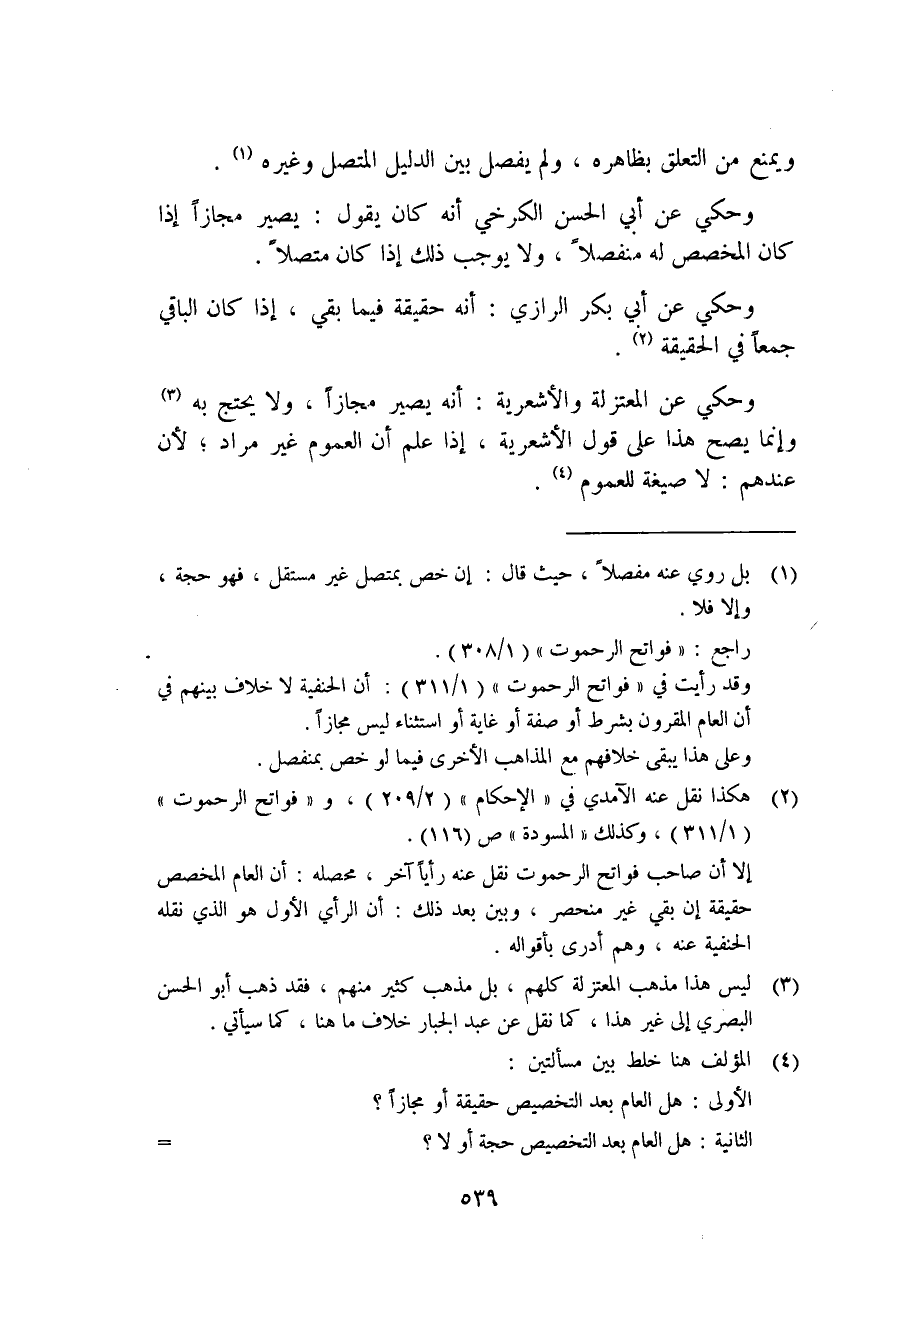 ويمنع من التعلق بظاهره ، ولم يفصل بين الدليل المتصل وغيره (١) .
وحكي عن أبي الحسن الكرخي أنه كان يقول : يصير مجازاً إذا
كان المخصص له منفصلاً ، ولا يوجب ذلك إذا كان متصلاً .
وحكي عن أبي بكر الرازي : أنه حقيقة فيما بقي ، إذا كان الباقي
جمعاً في الحقيقة (٢) .
وحكي عن المعتزلة والأشعرية : أنه يصير مجازاً ، ولا يحتج به (٣)
وإنما يصح هذا على قول الأشعرية ، إذا علم أن العموم غير مراد ؛ لأن
عندهم : لا صيغة للعموم (٤) .
(١) بل روي عنه مفصلاً ، حيث قال : إن خص بمتصل غير مستقل ، فهو حجة ،
وإلا فلا .
راجع : « فواتح الرحموت » ( ٣٠٨/١ ) .
وقد رأيت في « فواتح الرحموت » ( ٣١١/١ ) : أن الحنفية لا خلاف بينهم في
أن العام المقرون بشرط أو صفة أو غاية أو استثناء ليس مجازاً .
وعلى هذا يبقى خلافهم مع المذاهب الأخرى فيما لو خص بمنفصل .
(٢) هكذا نقل عنه الآمدي في « الإحكام » ( ٢٠٩/٢ ) ، و « فواتح الرحموت »
( ٣١١/١ ) ، وكذلك « المسودة » ص (١١٦) .
إلا أن صاحب فواتح الرحموت نقل عنه رأياً آخر ، محصله : أن العام المخصص
حقيقة إن بقي غير منحصر ، وبين بعد ذلك : أن الرأي الأول هو الذي نقله
الحنفية عنه ، وهم أدرى بأقواله .
(٣) ليس هذا مذهب المعتزلة كلهم ، بل مذهب كثير منهم ، فقد ذهب أبو الحسن
البصري إلى غير هذا ، كما نقل عن عبد الجبار خلاف ما هنا ، كما سيأتي .
(٤) المؤلف هنا خلط بين مسألتين :
الأولى : هل العام بعد التخصيص حقيقة أو مجازاً ؟
الثانية : هل العام بعد التخصيص حجة أو لا ؟ =
٥٣٩